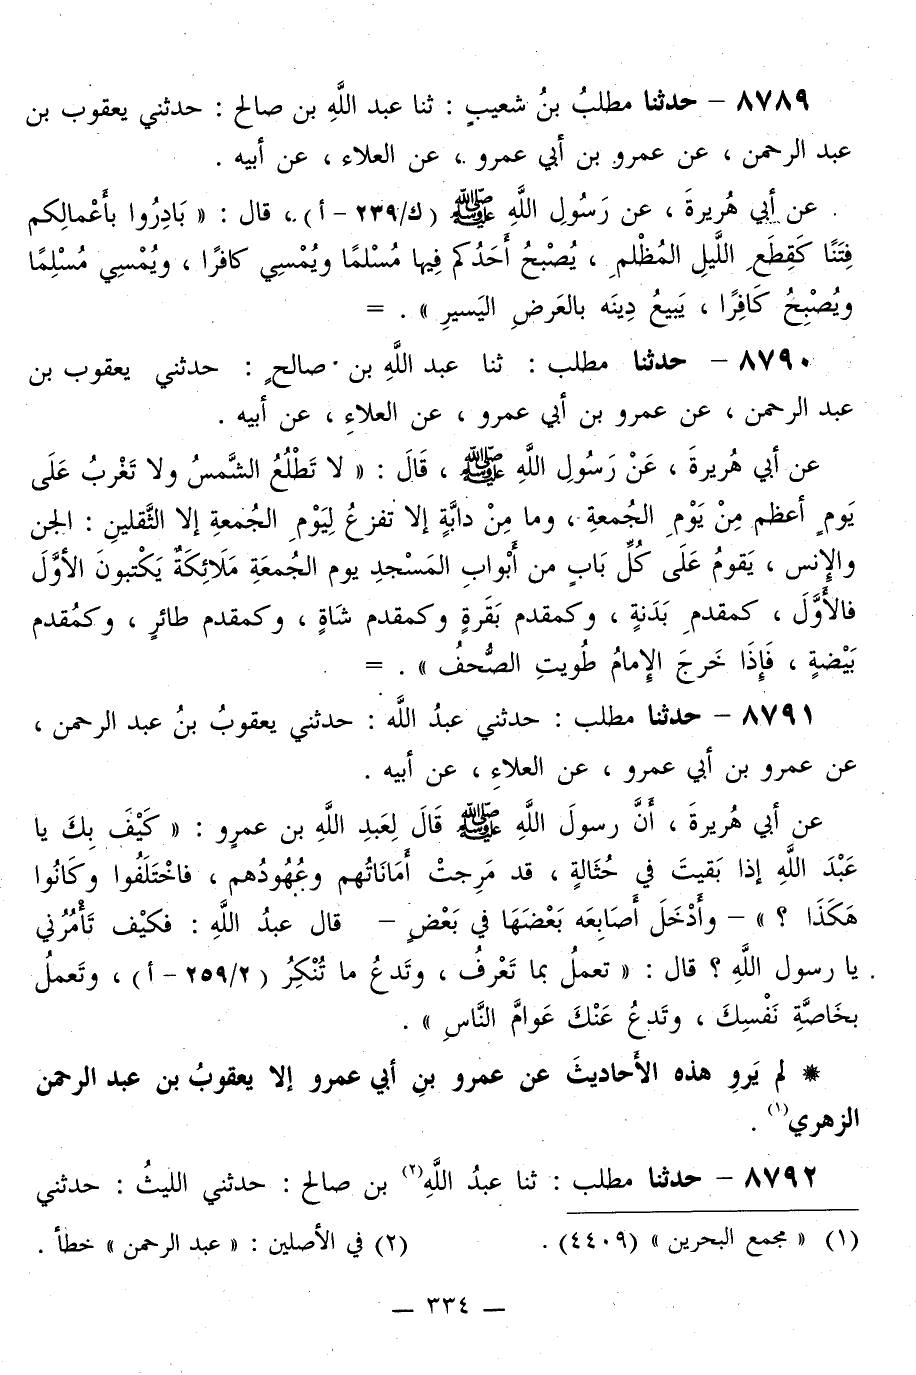 ٨٧٨٩ – حدثنا مطلبُ بنُ شعيبٍ : ثنا عبد اللَّهِ بن صالح : حدثني يعقوب بن
عبد الرحمن ، عن عمرو بن أبي عمرو ، عن العلاء ، عن أبيه .
عن أبي هُريرةَ ، عن رَسُولِ اللَّهِ ﷺ (ك/٢٣٩ – أ) ، قال : « بَادِرُوا بأَعْمالِكم
فِتَنًا كَقِطَعِ اللَّيلِ المُظْلمِ ، يُصْبحُ أَحَدُكم فِيها مُسْلمًا ويُمْسِي كافرًا ، ويُمْسِي مُسْلِمًا
ويُصْبِحُ كَافِرًا ، يَبيعُ دِينَه بالعَرضِ اليَسيرِ » . =
٨٧٩٠ – حدثنا مطلب : ثنا عبد اللَّهِ بن صالحٍ : حدثني يعقوب بن
عبد الرحمن ، عن عمرو بن أبي عمرو ، عن العلاءِ ، عن أبيه .
عن أبي هُريرةَ ، عَنْ رَسُولِ اللَّهِ ﷺ ، قَالَ : « لا تَطْلُعُ الشَّمسُ ولا تَغْربُ عَلَى
يَومٍ أعظم مِنْ يَوْمِ الجُمعةِ ، وما مِنْ دابَّةٍ إلا تفزعُ لِيَوْمِ الجُمعةِ إلا الثَّقلينِ : الجن
والإِنس ، يَقومُ عَلَى كُلِّ بَابٍ من أَبْوابِ المَسْجدِ يوم الجُمعَةِ مَلَائِكَةٌ يَكْتبونَ الأوَّلَ
فالأَوَّلَ ، كمقدمِ بَدَنةٍ ، وكمقدم بَقَرةٍ وكمقدم شَاةٍ ، وكمقدم طائرٍ ، وكمُقدم
بَيْضةٍ ، فَإِذَا خَرجَ الإِمامُ طُويتِ الصُّحفُ » . =
٨٧٩١ – حدثنا مطلب : حدثني عبدُ اللَّه : حدثني يعقوبُ بنُ عبد الرحمن ،
عن عمرو بن أبي عمرو ، عن العلاءِ ، عن أبيه .
عن أبي هُريرةَ ، أَنَّ رسولَ اللَّهِ ﷺ قَالَ لِعَبدِ اللَّهِ بن عمرٍو : « كَيْفَ بِكَ يا
عَبْدَ اللَّهِ إذا بَقيتَ في حُثَالةٍ ، قد مَرِجتْ أَمَانَاتُهم وعُهُودُهم ، فاخْتَلَفُوا وكَانُوا
هَكَذَا ؟ » – وأَدْخَلَ أَصَابِعَه بَعْضَهَا في بَعْضٍ – قال عبدُ اللَّهِ : فكيْف تَأْمُرُني
يا رسول اللَّهِ ؟ قال : « تعملُ بما تَعْرفُ ، وتَدعُ ما تُنْكِرُ (٢/٢٥٩ – أ) ، وتَعملُ
بخَاصَّةِ نَفْسِكَ ، وتَدعُ عَنْكَ عَوامَّ النَّاسِ » .
⁕ لم يَروِ هذه الأَحاديثَ عن عمرو بنِ أبي عمرو إلا يعقوبُ بن عبد الرحمن
الزهري(١) .
٨٧٩٢ – حدثنا مطلب : ثنا عبدُ اللَّهِ(٢) بن صالح : حدثني الليثُ : حدثني
(١) « مجمع البحرين » (٤٤٠٩) .
(٢) في الأصلين : « عبد الرحمن » خطأ .
— ٣٣٤ —